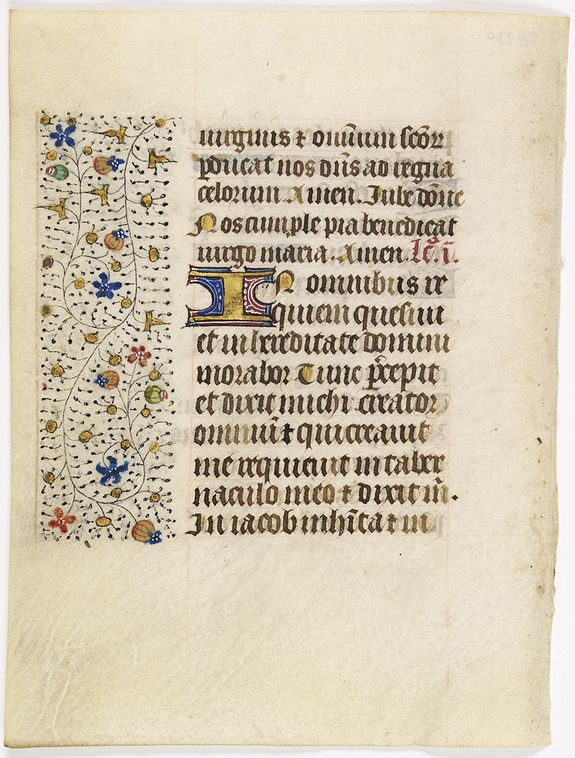 virginis ⁊ omnium scōrum
p̱ducat nos dn̄s ad regna
celorum. Amen. Iube dōne
Nos cum ple pia benedicat
virgo maria. Amen. lc̄. i.
In omnibus re
quiem quesiui
et in hereditate domini
morabor Tunc p̄cepit
et dixit michi creator
omniū ⁊ qui creauit
me requieuit in taber
naculo meo ⁊ dixit m̄.
In iacob inhīta ⁊ in